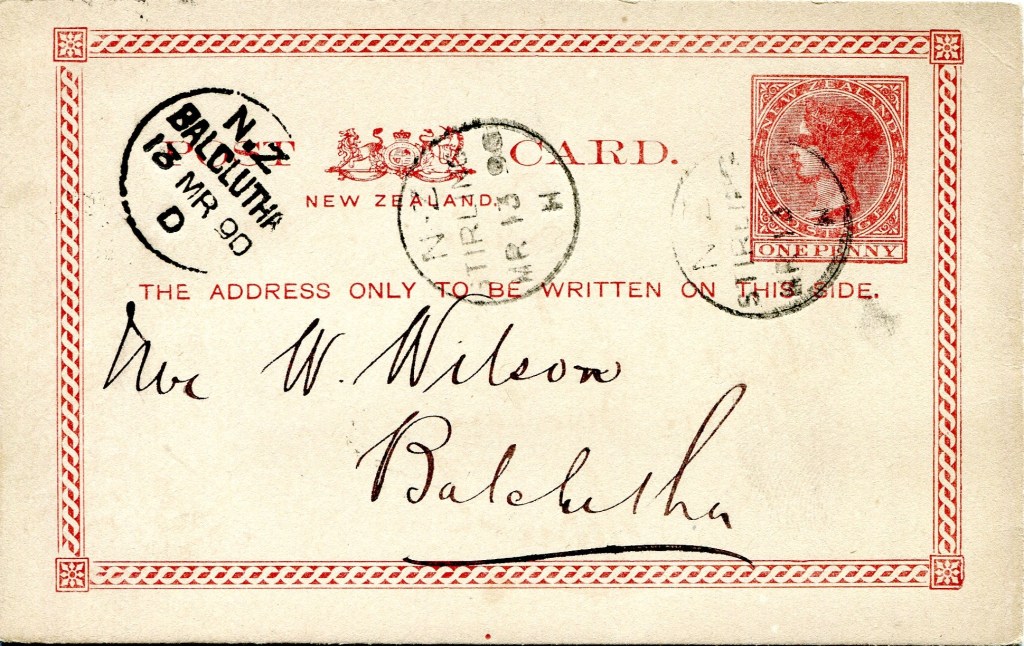 NEW ZEALAND
ONE PENNY
N.Z
BALCLUTHA
13 MR 90
D
POST CARD.
NEW ZEALAND.
N.Z
STIRLING
MR 13 90
H
N.Z
STIRLING
MR 13
H
THE ADDRESS ONLY TO BE WRITTEN ON THIS SIDE.
W. Wilson
Balclutha